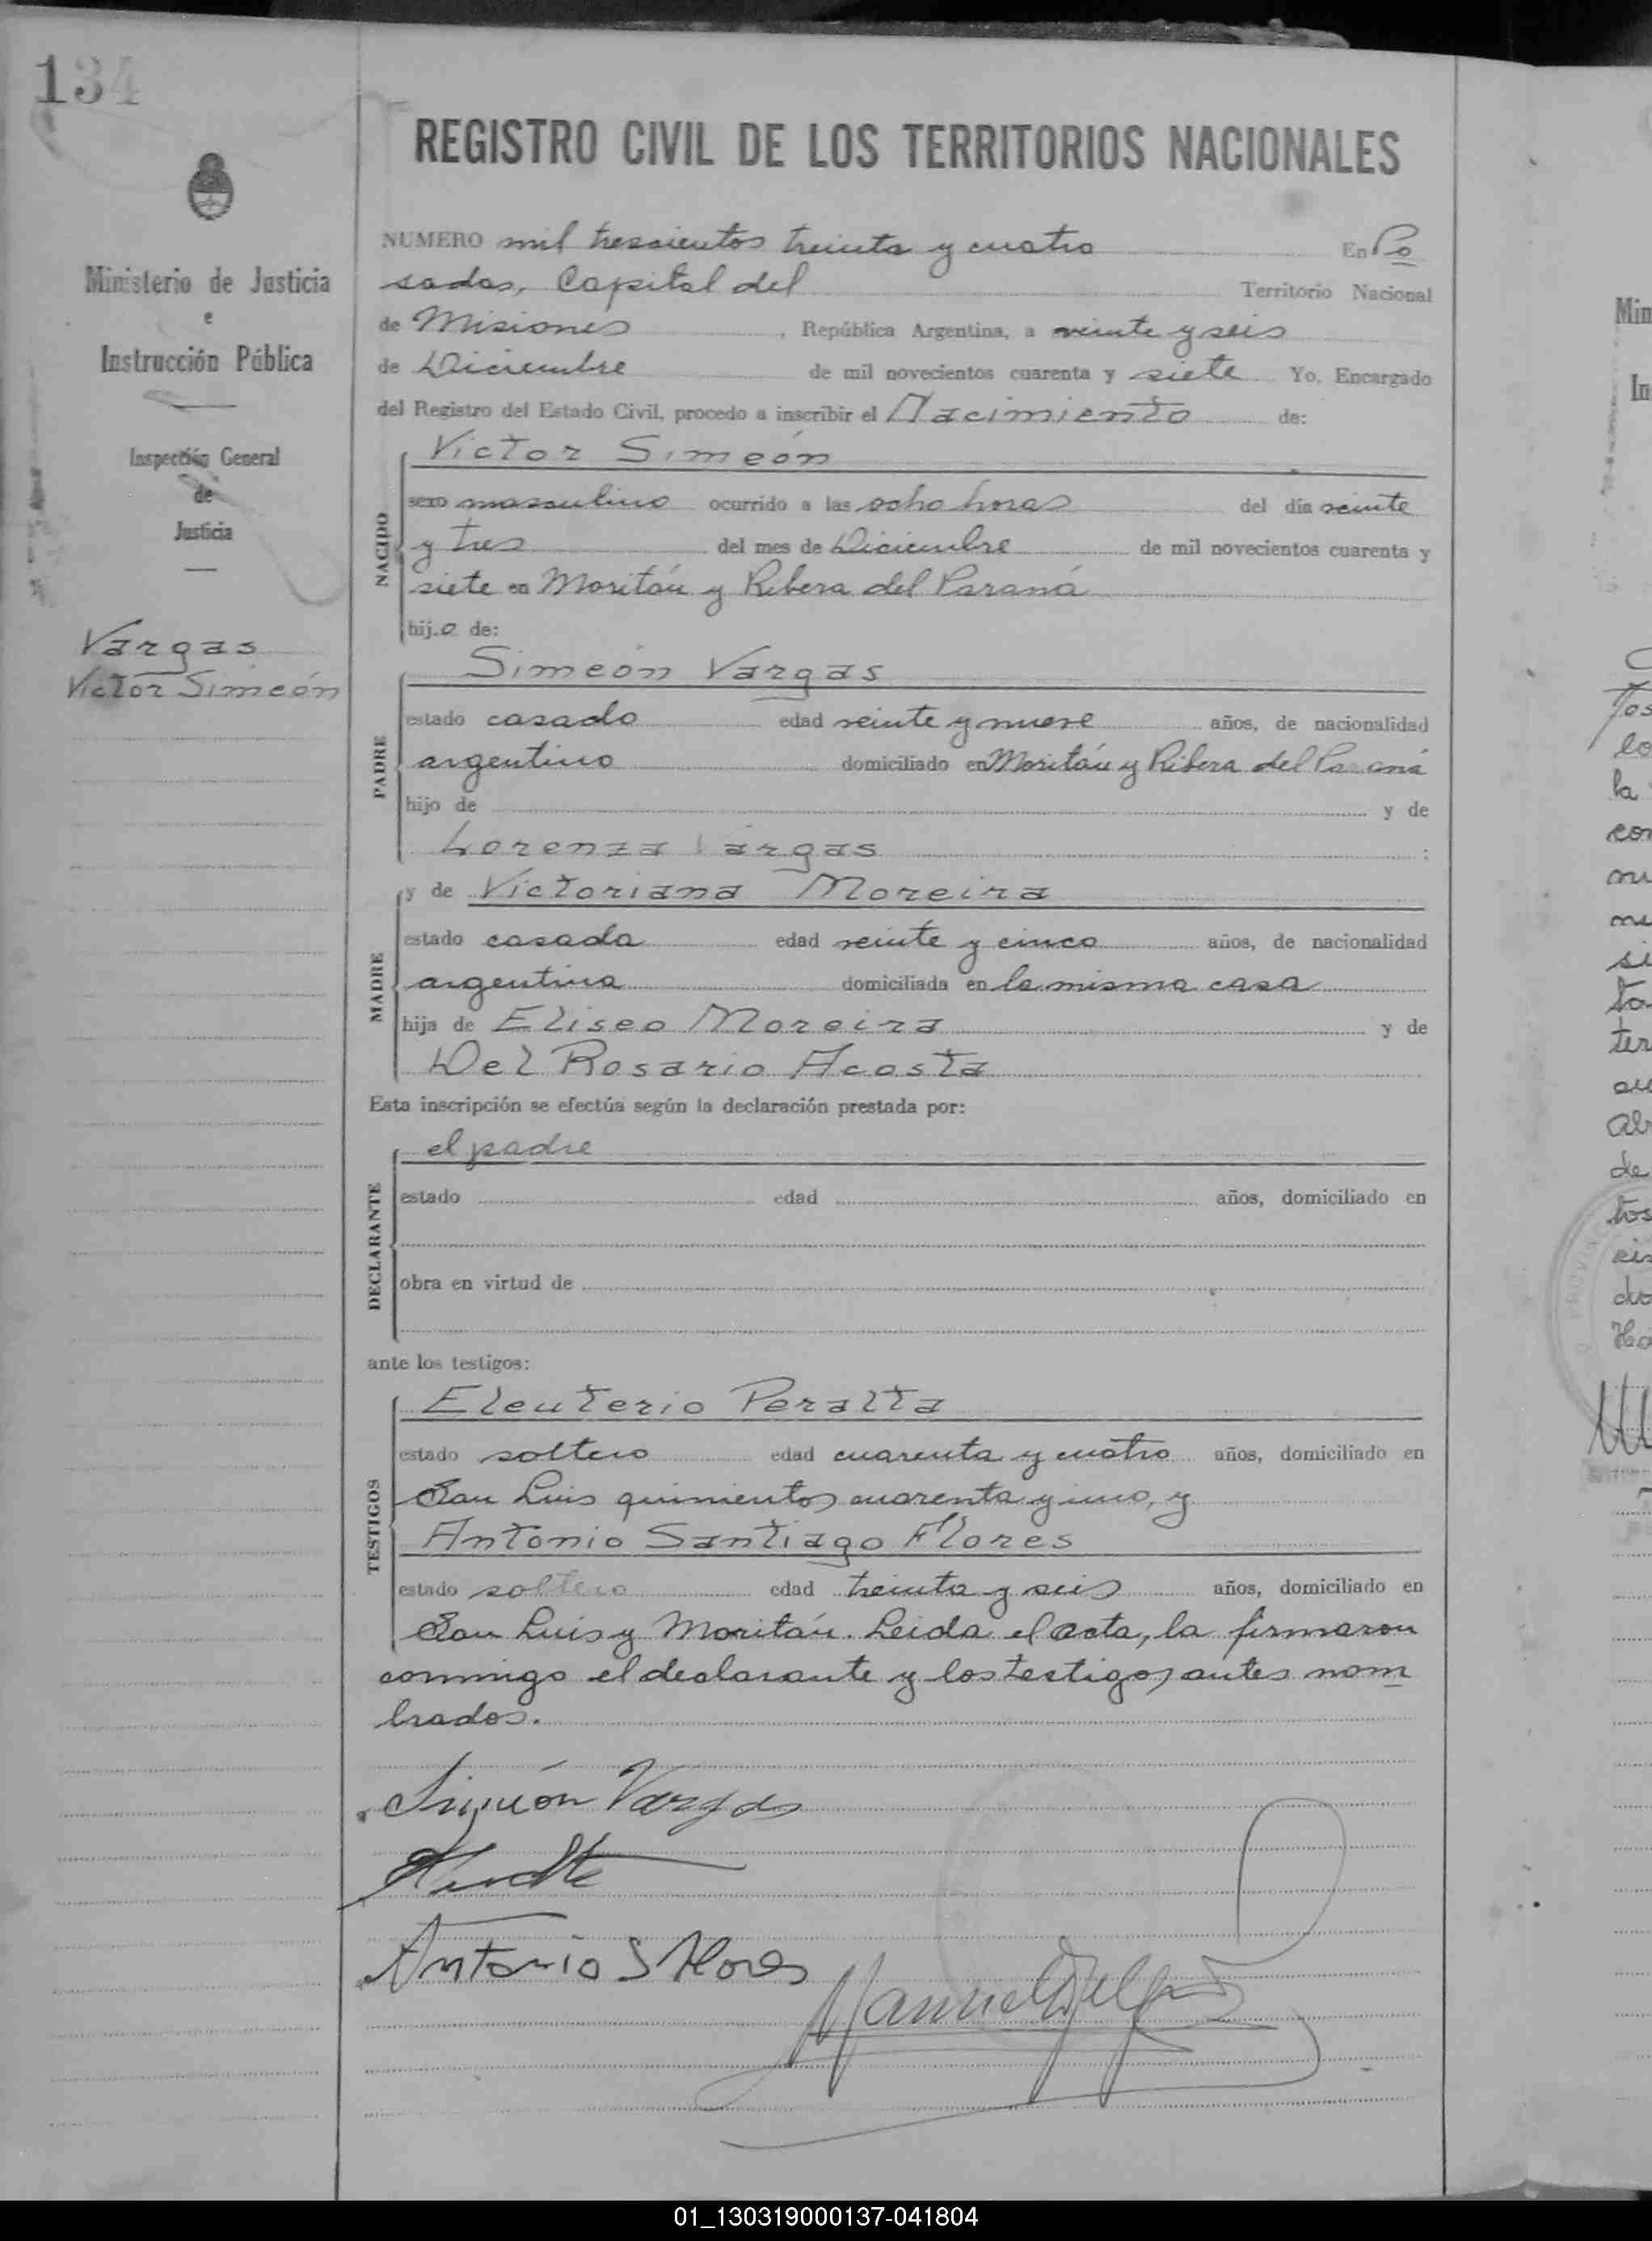 134
REGISTRO CIVIL DE LOS TERRITORIOS NACIONALES
Ministerio de Justicia
e
Instrucción Pública
Inspección General
de
Justicia
Vargas
Victor Simeón
NUMERO mil tresientos treinta y cuatro En Po
sadas, Capital del Territorio Nacional
de Misiones, República Argentina, a veinte y seis
de Diciembre de mil novecientos cuarenta y siete Yo, Encargado
del Registro del Estado Civil, procedo a inscribir el Nacimiento de:
NACIDO
Victor Simeón
sexo masculino ocurrido a las ocho horas del día veinte
y tres del mes de Diciembre de mil novecientos cuarenta y
siete en Moritán y Ribera del Paraná
hij.o de:
PADRE
Simeón Vargas
estado casado edad veinte y nueve años, de nacionalidad
argentino domiciliado en Moritán y Ribera del Paraná
hijo de y de
Lorenza Vargas ;
MADRE
y de Victoriana Moreira
estado casada edad veinte y cinco años, de nacionalidad
argentina domiciliada en la misma casa
hija de Eliseo Moreira y de
Del Rosario Acosta
Esta inscripción se efectúa según la declaración prestada por:
DECLARANTE
el padre
estado edad años, domiciliado en
obra en virtud de
ante los testigos:
TESTIGOS
Eleuterio Peralta
estado soltero edad cuarenta y cuatro años, domiciliado en
San Luis quinientos cuarenta y uno, y
Antonio Santiago Flores
estado soltero edad treinta y seis años, domiciliado en
San Luis y Moritán. Leida el acta, la firmaron
conmigo el declarante y los testigos antes nom
brados.
Simeón Vargas
Antonio S Flores
01_130319000137-041804